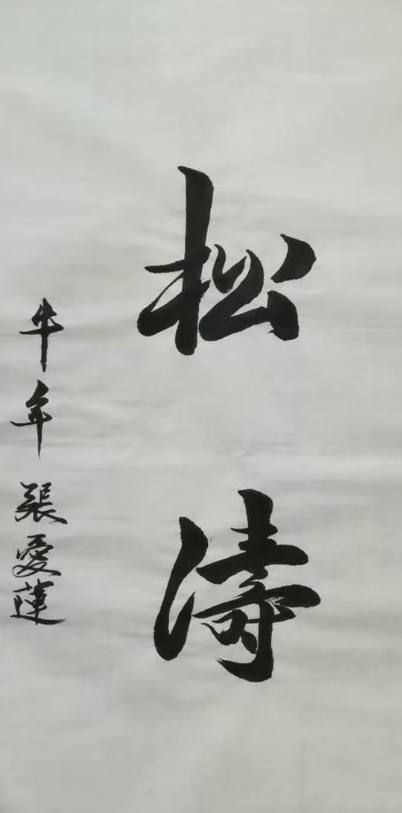 松濤
牛年 張愛蓮